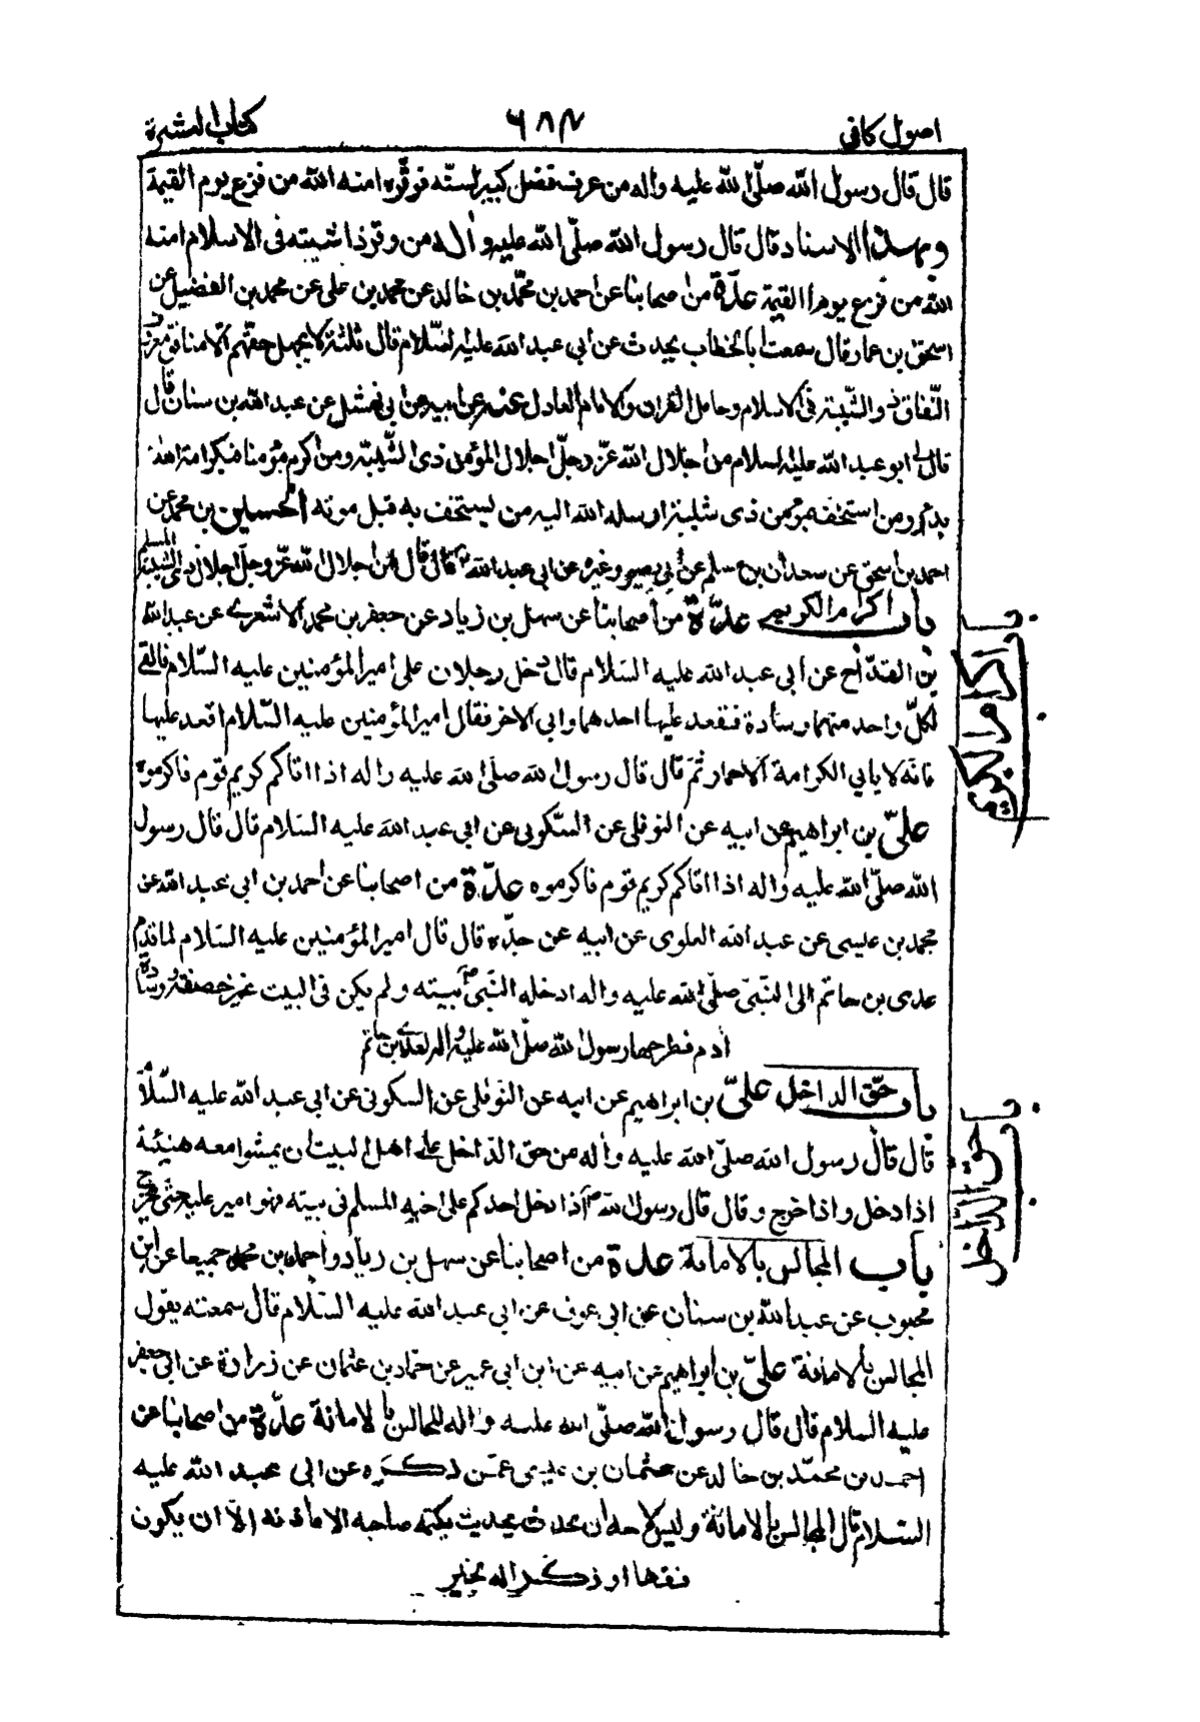 اصول كافى ٦٨٢ كتاب العشرة
قال قال رسول الله صلّى الله عليه واله من عرف فضل كبير لسنّه فوقّره امنه الله من فزع يوم القيمة
وبهذا الاسناد قال قال رسول الله صلّى الله عليه واله من وقر ذا شيبته فى الاسلام امنه
الله من فزع يوم القيمة عدّة من اصحابنا عن احمد بن محمّد بن خالد عن محمد بن على عن محمد بن الفضيل عن
اسحق بن عمار قال سمعت ابا الخطاب يحدث عن أبي عبد الله عليه السّلام قال ثلثة لا يجهل حقهم الا منافق معروف
النّفاق ذو الشّيبة فى الاسلام وحامل القران والامام العادل عنه عن ابيه عن ابى نهشل عن عبد الله بن سنان قال
قال لى ابو عبد الله عليه السلام من اجلال الله عزّ وجلّ اجلال المؤمن ذى الشّيبة ومن اكرم مؤمنا فبكرامة الله
بدأ ومن استخف بمؤمن ذى شيبة ارسل الله اليه من يستخف به قبل موته الحسين بن محمد عن
احمد بن اسحق عن سعدان بن مسلم عن أبي بصير وغيره عن ابى عبد الله ع قال قال من اجلال الله عزّ وجلّ اجلال ذى الشيبة المسلم
باب اكرام الكريم عدّة من اصحابنا عن سهل بن زياد عن جعفر بن محمد الاشعرى عن عبد الله
بن القدّاح عن ابى عبد الله عليه السّلام قال دخل رجلان على امير المؤمنين عليه السّلام فالقى
لكلّ واحد منهما وسادة فقعد عليها احدهما وابى الاخر فقال امير المؤمنين عليه السّلام اقعد عليها
فانّه لا يابى الكرامة الا حمار ثمّ قال قال رسول الله صلى الله عليه واله اذا اتاكم كريم قوم فاكرموه
علىّ بن ابراهيم عن ابيه عن النوفلى عن السّكونى عن ابى عبد الله عليه السّلام قال قال رسول
الله صلّى الله عليه واله اذا اتاكم كريم قوم فاكرموه عدّة من اصحابنا عن احمد بن ابى عبد الله عن
محمد بن عيسى عن عبد الله العلوى عن ابيه عن جدّه قال قال امير المؤمنين عليه السّلام لما قدم
عدى بن حاتم الى النّبىّ صلّى الله عليه واله ادخله النّبىّ ص بيته ولم يكن فى البيت غير خصفة ووسادة
أدم فطرحها رسول الله صلّى الله عليه واله لعدى بن حاتم
باب حقّ الداخل علىّ بن ابراهيم عن ابيه عن النّوفلى عن السكونى عن ابى عبد الله عليه السّلام
قال قال رسول الله صلّى الله عليه واله من حق الداخل على اهل البيت ان يمشوا معه هنيئة
اذا دخل واذا خرج وقال قال رسول الله ص اذا دخل احدكم على اخيه المسلم فى بيته فهو امير عليه حتى يخرج
باب المجالس بالامانة عدة من اصحابنا عن سهل بن زياد واحمد بن محمد جميعا عن ابن
محبوب عن عبد الله بن سنان عن ابى عوف عن ابى عبد الله عليه السّلام قال سمعته يقول
المجالس بالامانة علىّ بن ابراهيم عن ابيه عن ابن ابى عمير عن حمّاد بن عثمان عن زرارة عن ابى جعفر
عليه السلام قال قال رسول الله صلّى الله عليه واله المجالس بالامانة عدّة من اصحابنا عن
احمد بن محمّد بن خالد عن عثمان بن عيسى عمّن ذكره عن ابى عبد الله عليه
السّلام قال المجالس بالامانة وليس لاحد ان يحدث بحديث يكتمه صاحبه الا باذنه الّا ان يكون
فقها او ذكرا له بخير
باب اكرام الكريم
باب حق الداخل